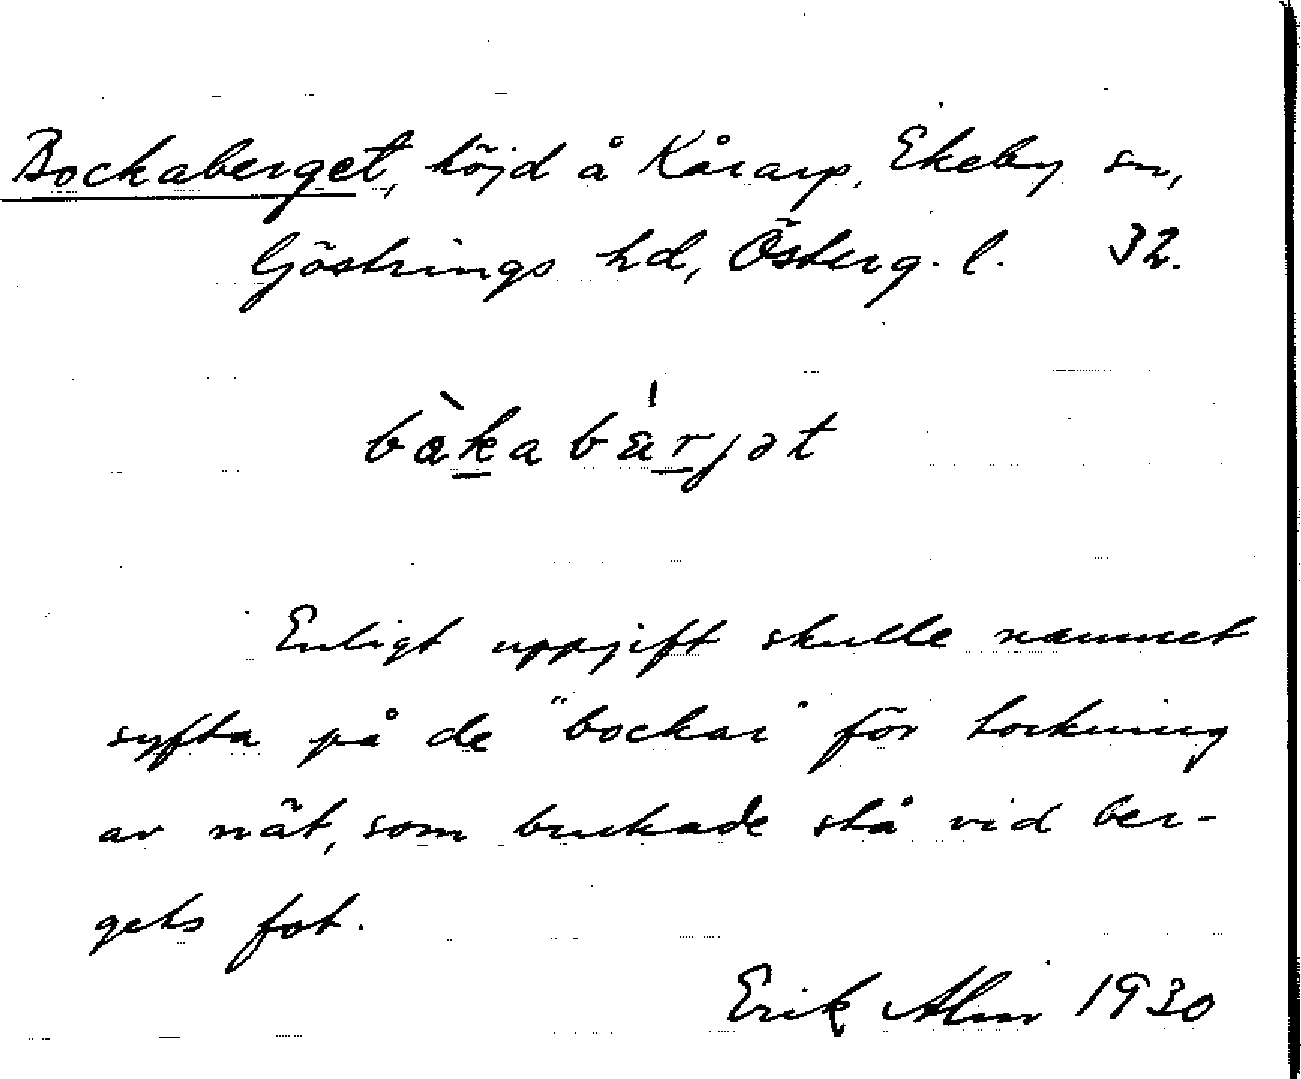 Bockaberget, höjd å Kårarp, Ekeby sn,
Göstrings hd, Österg. l. 32.
bàkabärjət
Enligt uppgift skulle namnet
syfta på de "bockar" för torkning
av nät, som brukade stå vid ber-
gets fot.
Erik Alm 1930